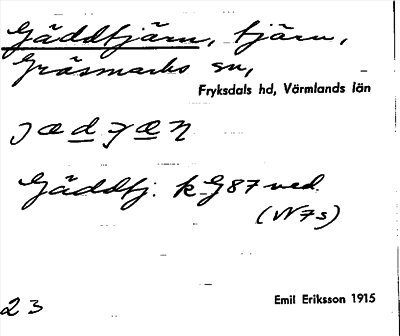 Gäddtjärn, tjärn,
Gräsmarks sn,
Fryksdals hd, Värmlands län
Gäddtj. k G 87 ned.
(N 7 s)
23
Emil Eriksson 1915